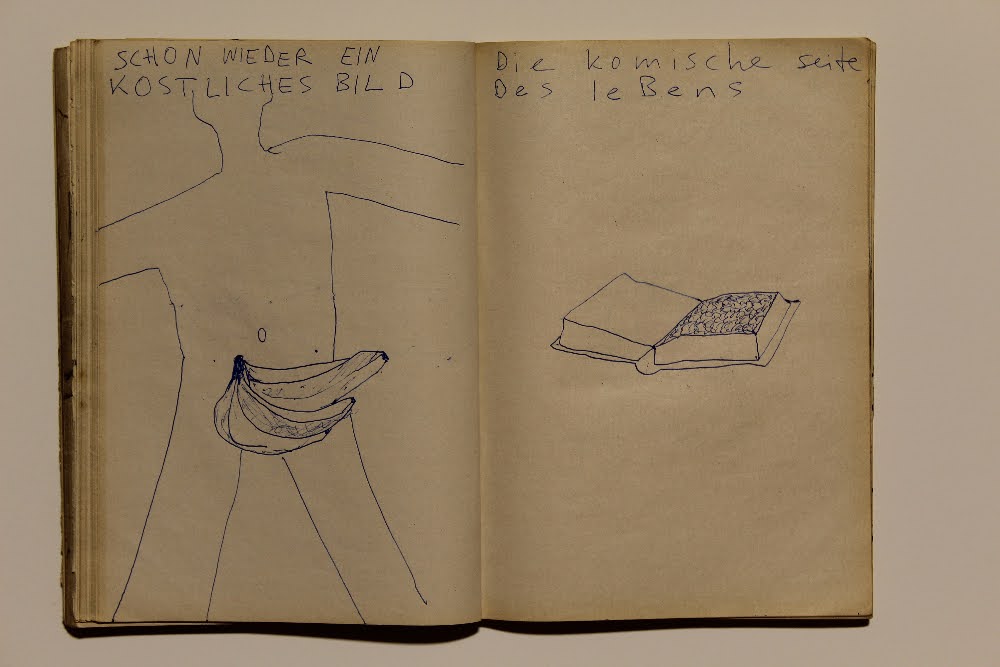 SCHON WIEDER EIN
KOSTLICHES BILD
Die komische seite
Des leBens